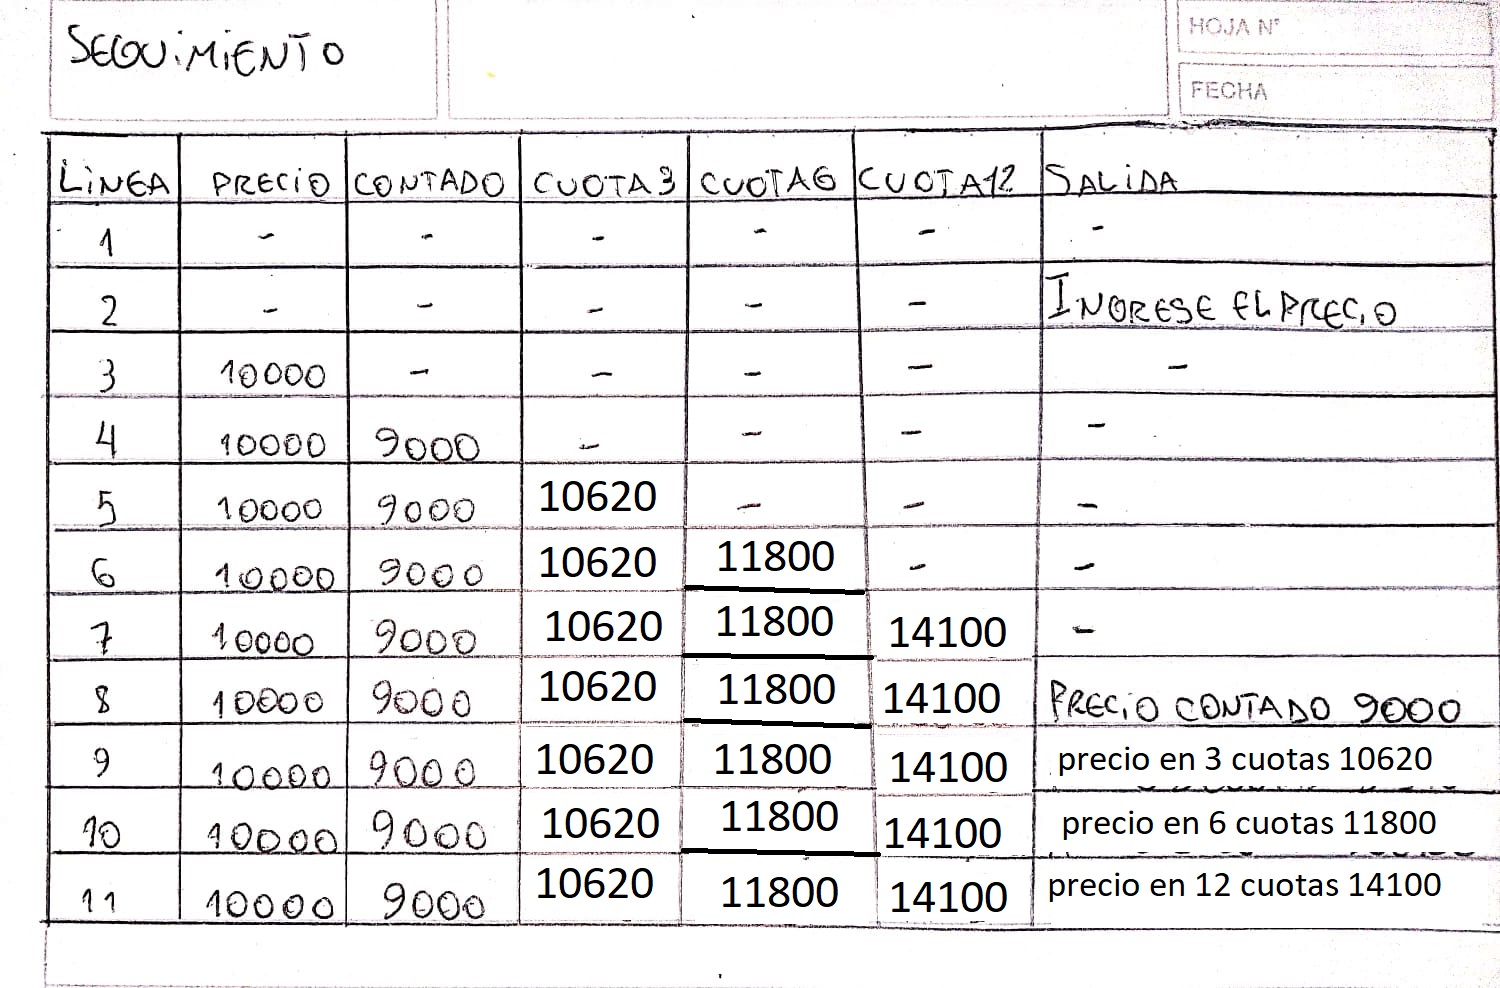 SEGUIMIENTO
HOJA N°
FECHA
LINEA PRECIO CONTADO CUOTA3 CUOTA6 CUOTA12 SALIDA
1 - - - - - -
2 - - - - - INGRESE EL PRECIO
3 10000 - - - - -
4 10000 9000 - - - -
5 10000 9000 10620 - - -
6 10000 9000 10620 11800 - -
7 10000 9000 10620 11800 14100 -
8 10000 9000 10620 11800 14100 PRECIO CONTADO 9000
9 10000 9000 10620 11800 14100 precio en 3 cuotas 10620
10 10000 9000 10620 11800 14100 precio en 6 cuotas 11800
11 10000 9000 10620 11800 14100 precio en 12 cuotas 14100